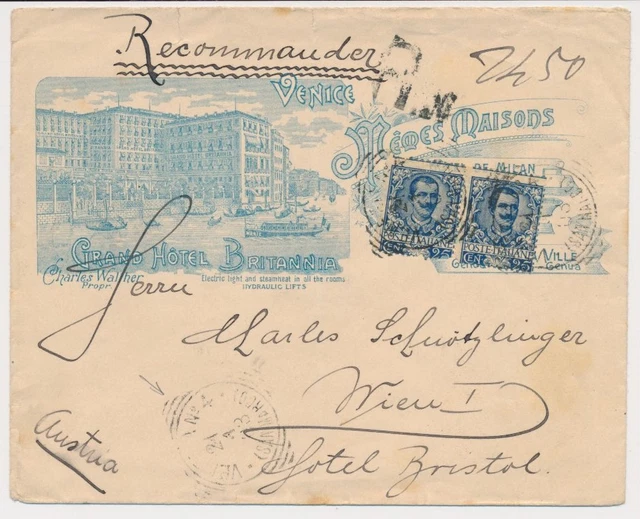 Recommander
R
2450
VENICE
MÊMES MAISONS
DE MILAN
VILLE
Genua
GRAND HÔTEL BRITANNIA
Charles Walther
Propr.
Electric light and steamheat in all the rooms
HYDRAULIC LIFTS
POSTE ITALIANE
CENT 25
POSTE ITALIANE
CENT 25
Herrn
Charles Schwötzlinger
Wien I
Hotel Bristol.
Austria